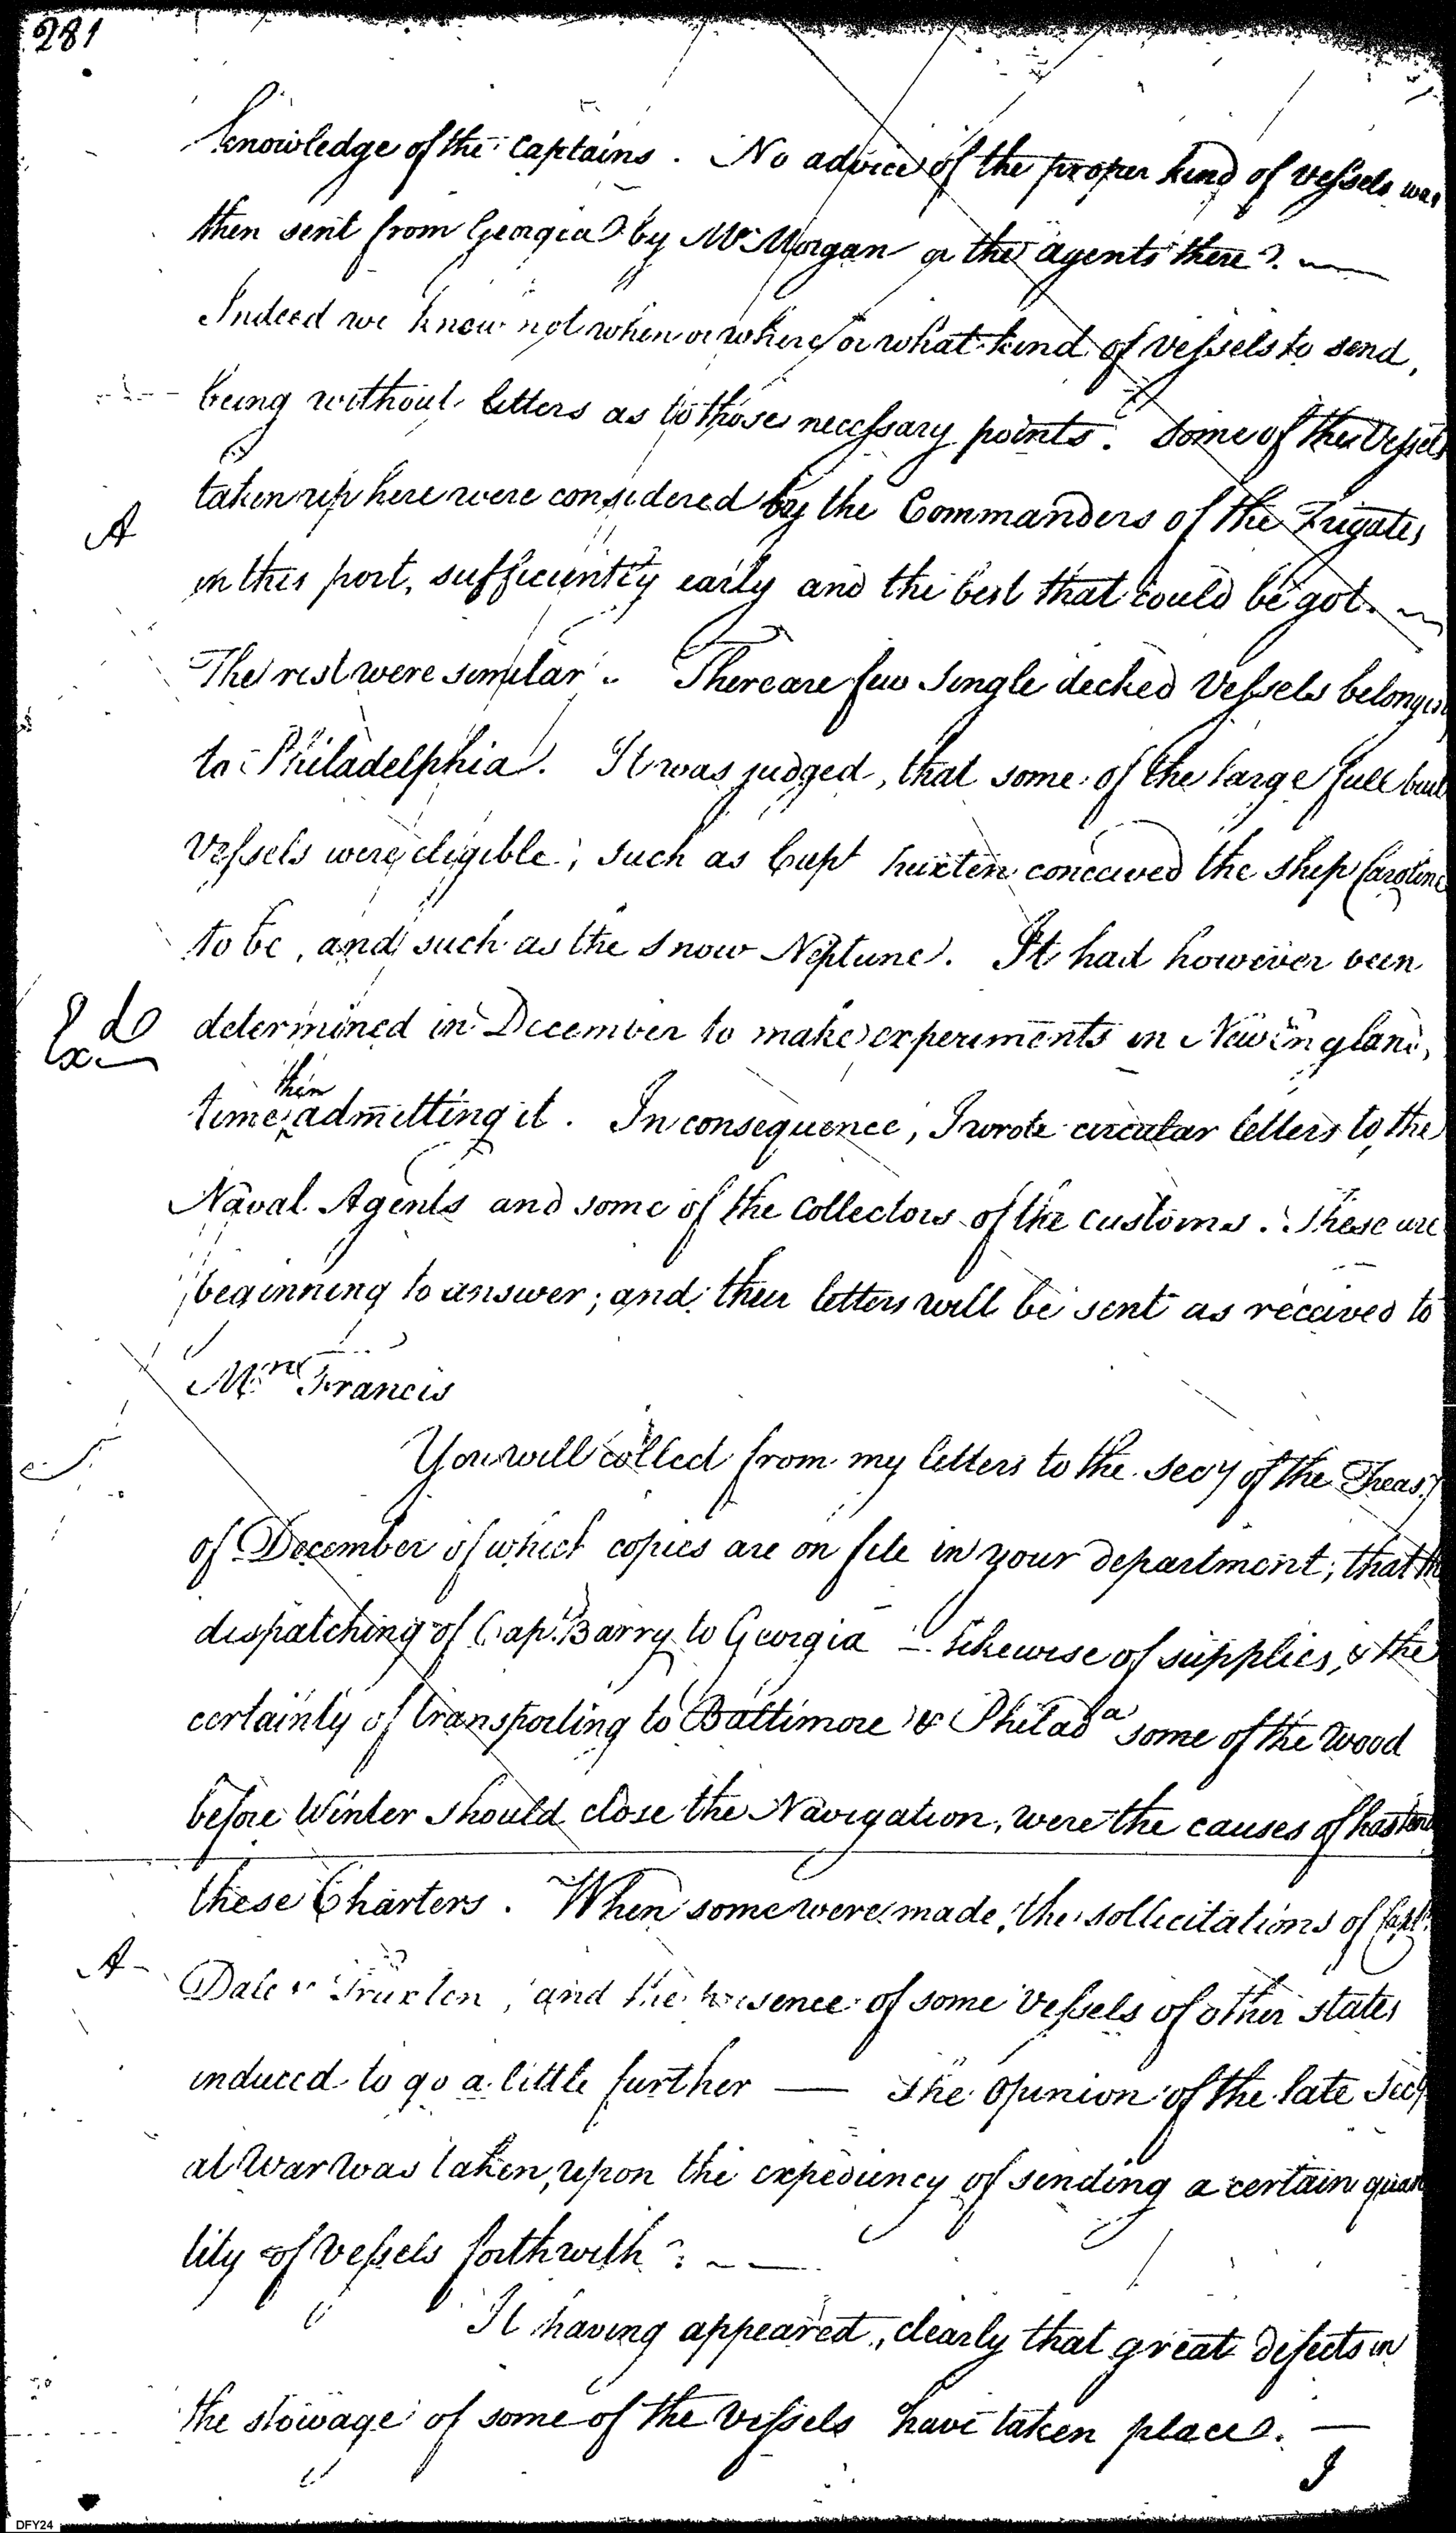 281
knowledge of the Captains. No advice of the proper kind of vessels was
then sent from Georgia by Mr Morgan or the agents there. —
Indeed we know not when or where or what kind of vessels to send,
being without letters as to those necessary points. Some of the Vessels
taken up here were considered by the Commanders of the Frigates
A
in this port, sufficiently early and the best that could be got. —
The rest were similar. There are few Single decked Vessels belonging
to Philadelphia. It was judged, that some of the large full built
Vessels were eligible; such as Capt Truxten conceived the ship Caroline
to be, and such as the Snow Neptune. It had however been
do
determined in December to make experiments in New England,
then
time admitting it. In consequence, I wrote circular letters to the
Naval Agents and some of the Collectors of the customs. These are
beginning to answer; and their letters will be sent as received to
Mr Francis
You will collect from my letters to the Secy of the Treasy
of December of which copies are on file in your department; that the
dispatching of Capt Barry to Georgia — likewise of supplies, & the
certainty of transporting to Baltimore & Philada some of the wood
before Winter should close the Navigation, were the causes of hastening
these Charters. When some were made, the sollicitations of Capts
A —
Dale & Truxten, and the presence of some Vessels of other states
induced to go a little further — The Opinion of the late Secy
at War was taken, upon the expediency of sending a certain quan
tity of Vessels forthwith. —
It having appeared, clearly that great defects in
the stowage of some of the Vessels have taken place. —
I
DFY24